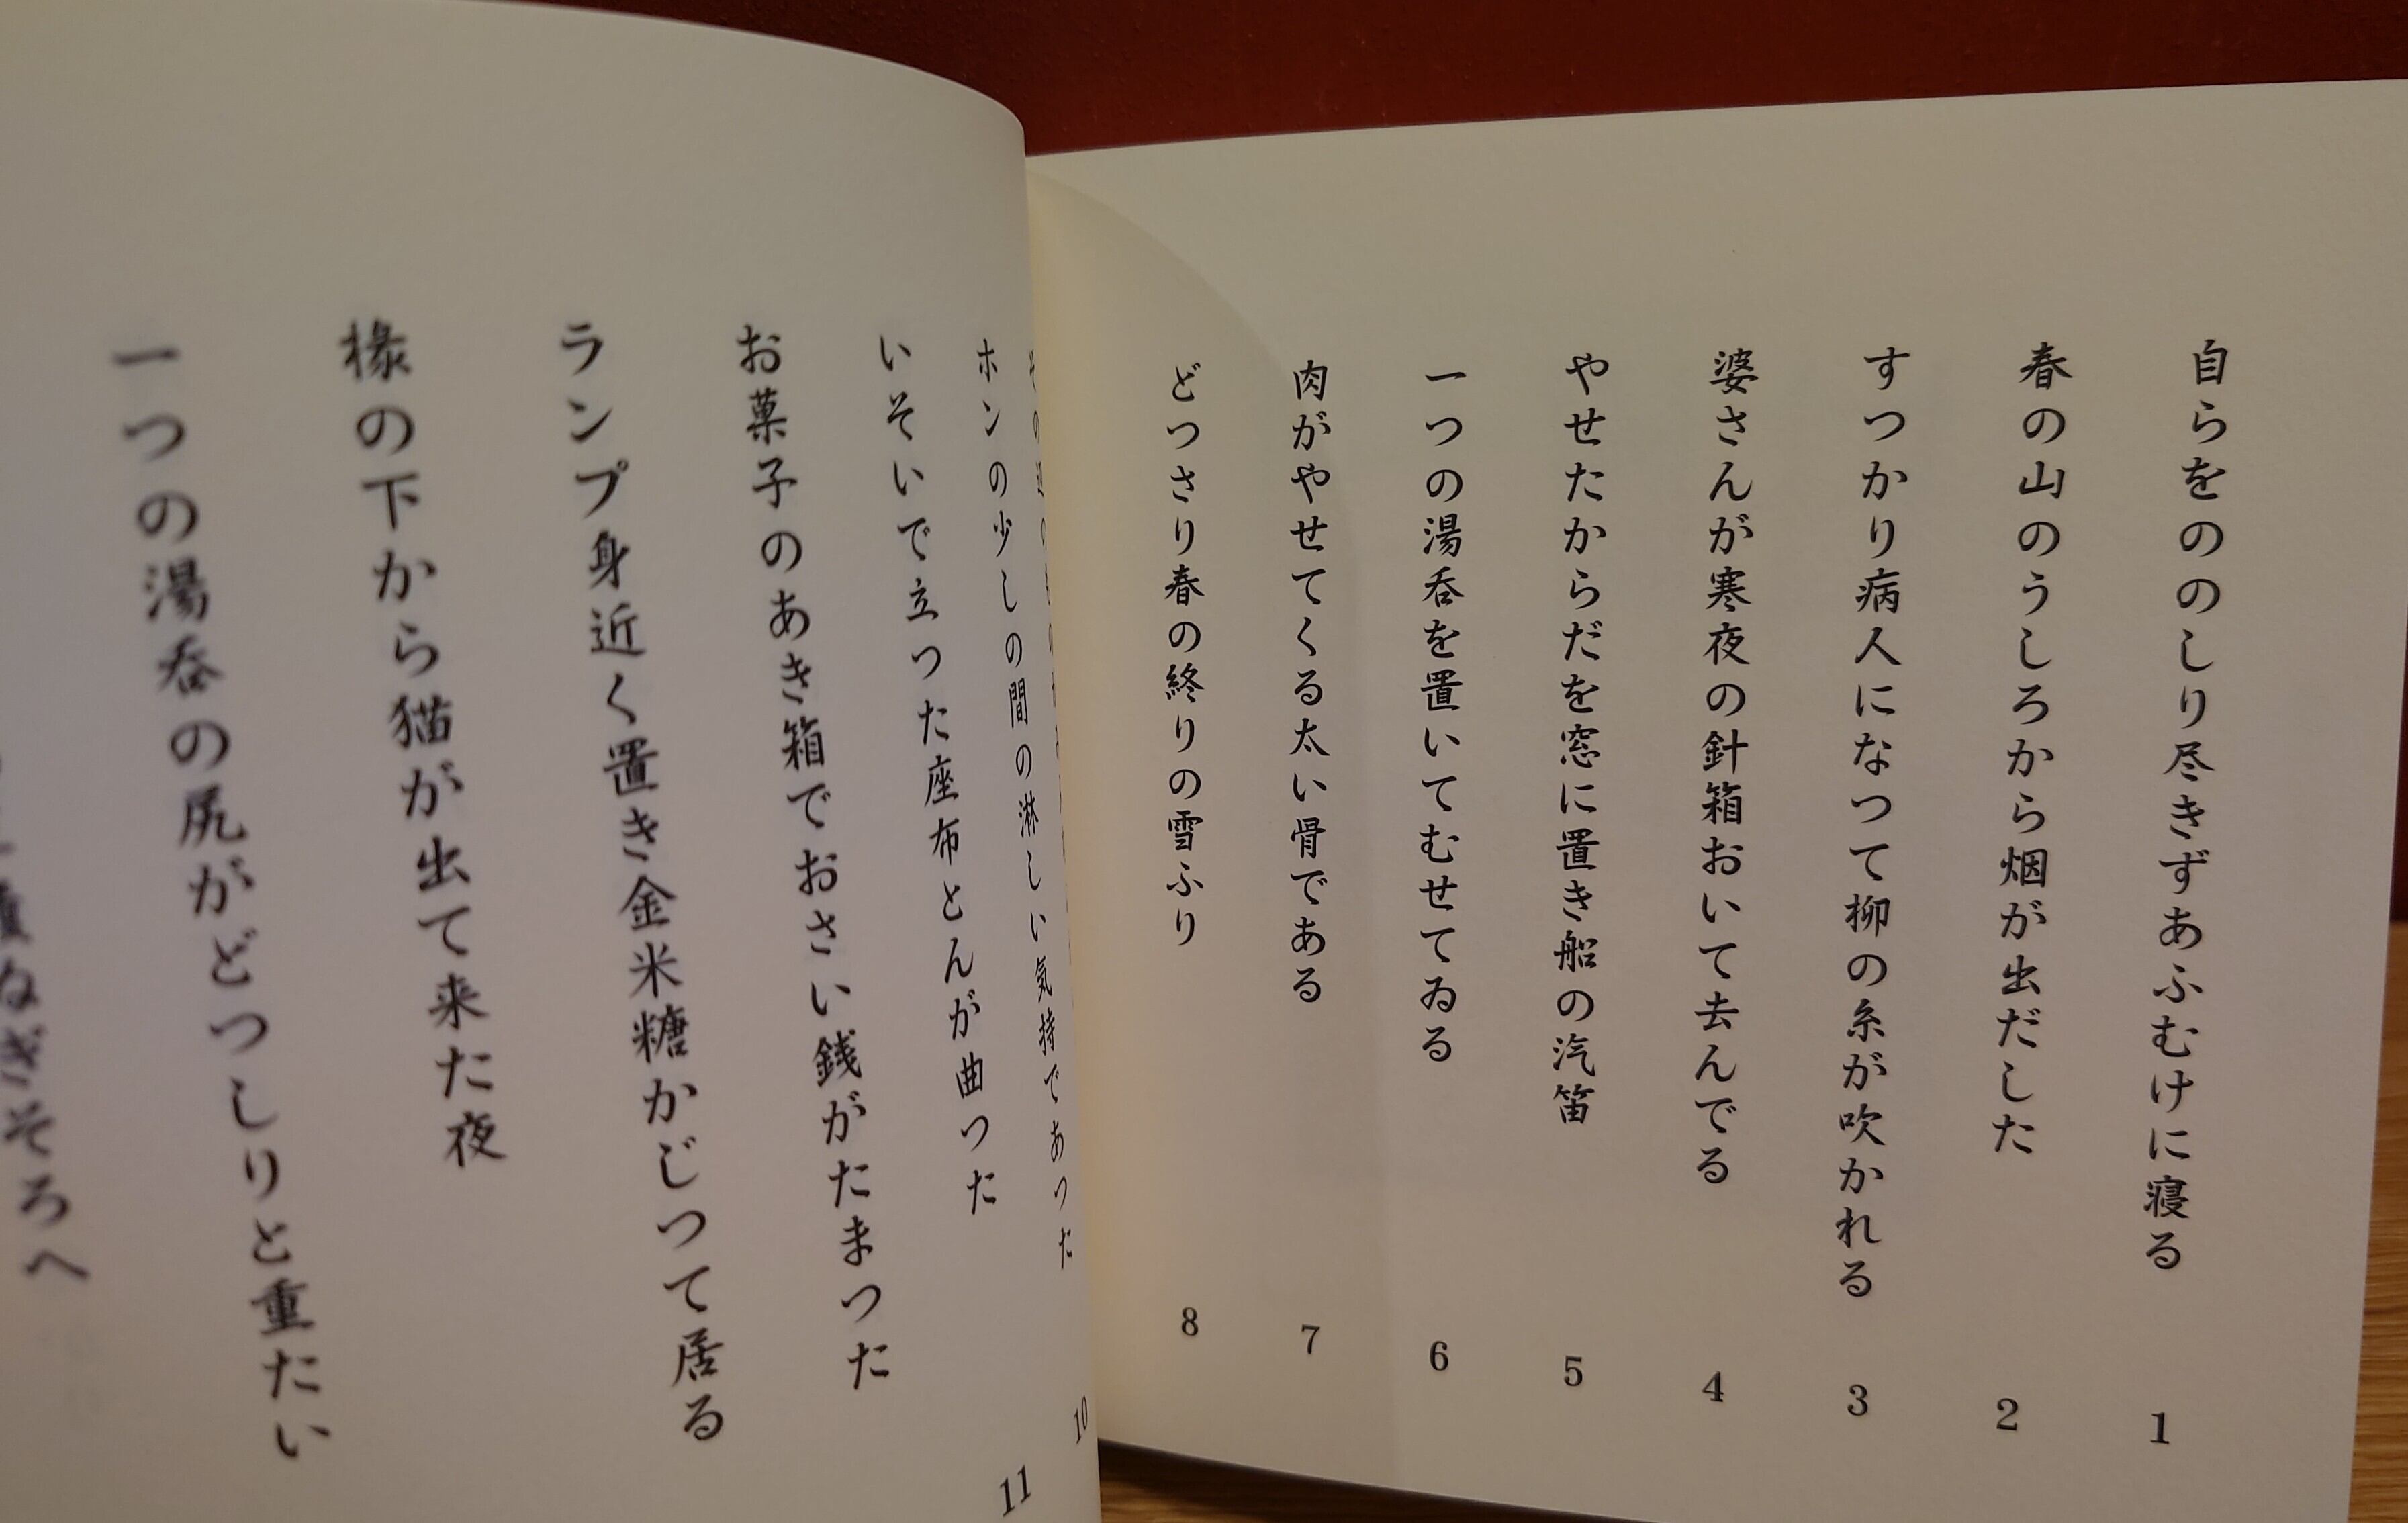 自らをののしり尽きずあふむけに寝る 1
春の山のうしろから烟が出だした 2
すつかり病人になつて柳の糸が吹かれる 3
婆さんが寒夜の針箱おいて去んでる 4
やせたからだを窓に置き船の汽笛 5
一つの湯呑を置いてむせてゐる 6
肉がやせてくる太い骨である 7
どつさり春の終りの雪ふり 8
10
ホンの少しの間の淋しい気持であつた 11
いそいで立つた座布とんが曲つた
お菓子のあき箱でおさい銭がたまつた
ランプ身近く置き金米糖かじつて居る
椽の下から猫が出て来た夜
一つの湯呑の尻がどつしりと重たい
ねぎそろへ